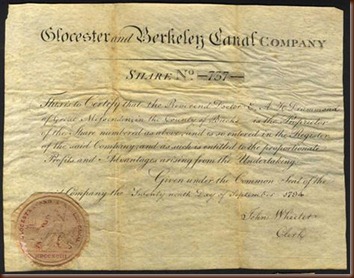 Glocester and Berkeley Canal COMPANY
SHARE No 757
These to Certify that the Reverend Doctor E A H Drummond
of Great in the County of Bucks is the Proprietor
of the Share numbered as above and is so entered in the Register
of the said Company and as such is entitled to the proportionate
Profits and Advantages arising from the Undertaking.
Given under the Common Seal of the
Company the Day of September
John Wheeler
Clerk